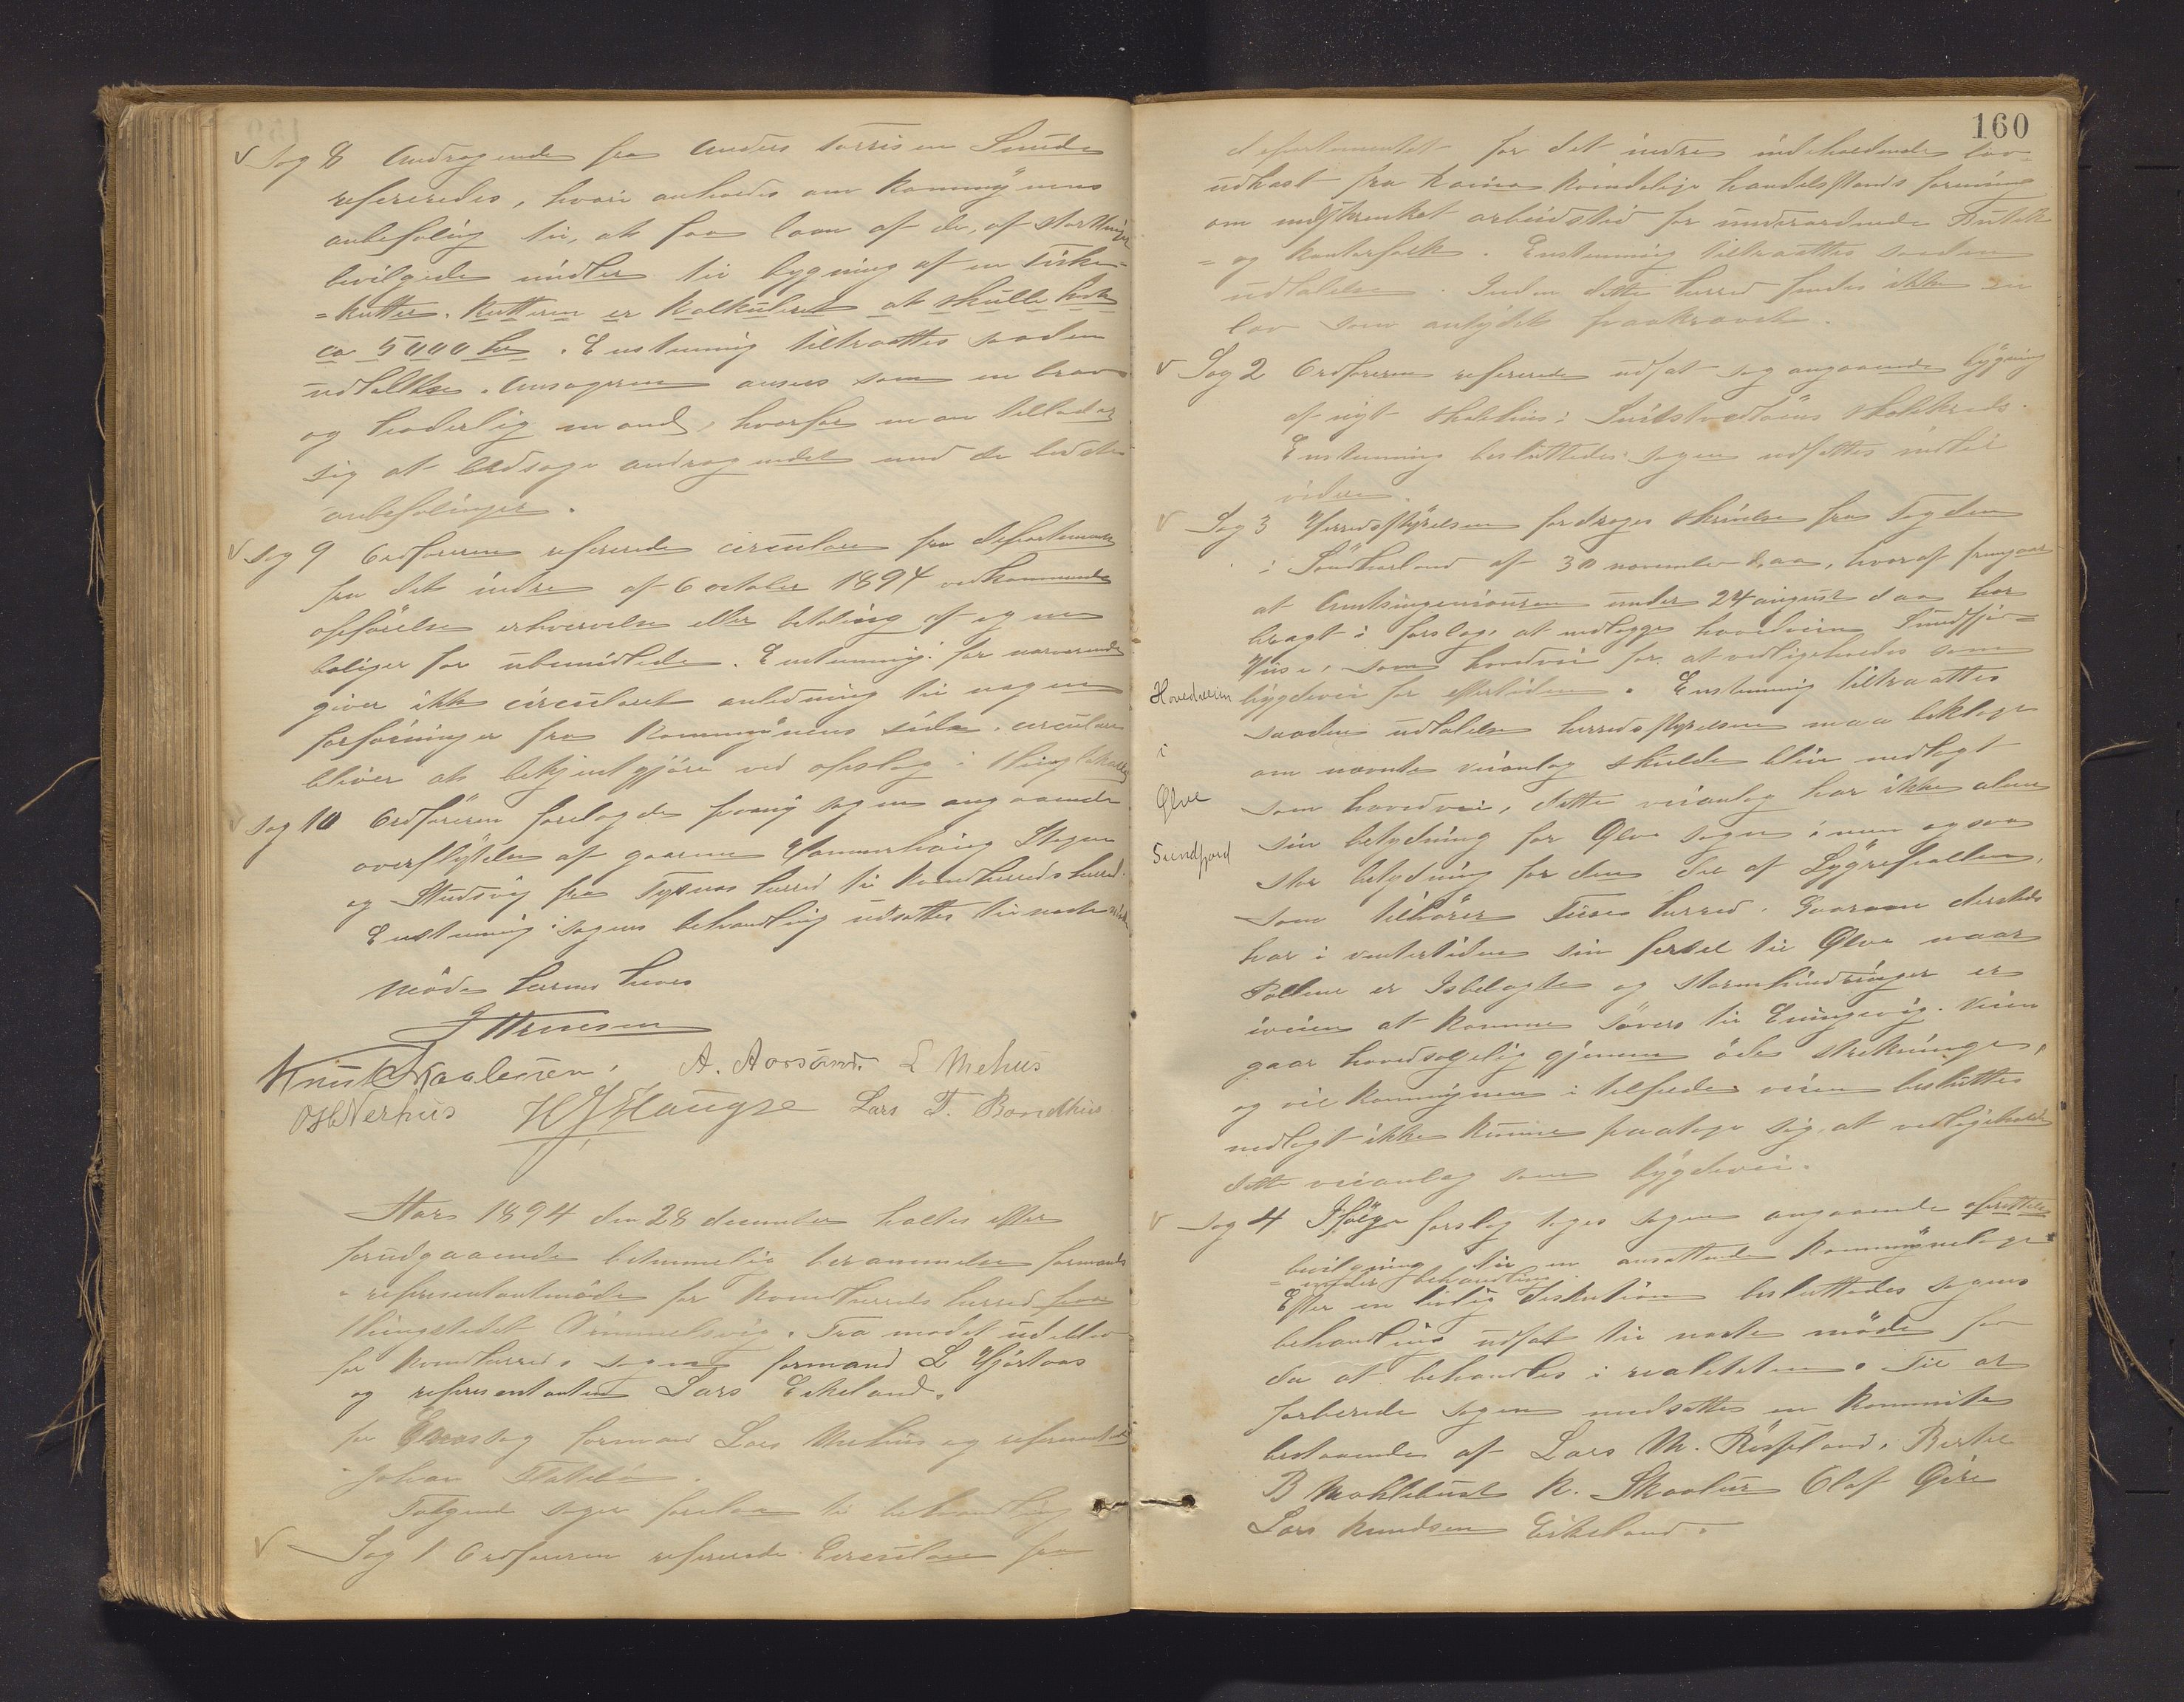 Sag 8 Andragende fra Anders Torrisen Sunde
refereredes, hvori anholdes om Kommunens
anbefaling til, at faa laan af de, af Storthinget
bevilgede midler til bygning af en Fiske-
=kutter. Kutteren er Kalkuleret at skulle koste
ca 5000 kr. Enstemmig tiltraattes saaden
udtalelse. Ansøgeren ansees som en brav
og hæderlig mand, hvorfor man tillader
sig at ledsage andragendet med de bedste
anbefalinger.
Sag 9 Ordføreren refererede circulære fra departementet
for det indre af 6 october 1894 vedkommende
opførelse erhvervelse eller betaling af egne
boliger for ubemidlede. Enstemmig: for nærværende
giver ikke circulæret anledning til nogen
forføininger fra Kommunens side. circulæret
bliver at bekjentgjøre ved opslag i Thinglokalet
Sag 10 Ordføreren forelagde paany sagen angaaende
overflytelse af gaarene Hammerhaug Stegen
og Studsvig fra Tysnæs herred til Kvindherreds herred.
Enstemmig: sagens behandling udsættes til næste møde
Møde herme hæves
J Henesen
Knut Skaaluren. A. Aarsand. L Mehus
O H Nerhus H J Haugse Lars T. Bondhus
Aar 1894 den 28 december holtes efter
forudgaaende betimmelig berammelse formands
=representantmøde for Kvindherreds herred paa
thingstedet Vimmelsvig. Fra mødet udeblev
for Kvindherreds sogn formand L Hjortaas
og representanten Lars Eikeland.
for Ænes sogn formand Lars Mehus og representant
Johan Flatebø.
Følgende sager forelaa til behandling
Sag 1 Ordføreren refererede Circulære fra
160
departementet for det indre indeholdende lov-
udkast fra kvindelige handelsstands forening
om indskrenket arbeidstid for underordnede Butik
= og kontorfolk. Enstemmig tiltraattes saaden
udtalelse. Inden dette herred findes ikke en
lov som antydet paakrævet.
Sag 2 Ordføreren refererede udsat sag angaaende bygning
af nyt skolehus i skolekreds.
Enstemmig besluttedes: sagen udsættes indtil
videre.
Sag 3 Herredsstyrelsen fordroges skrivelse fra Fogden
i Søndhorland af 30 november d, aa, hvoraf fremgaar
at Amtsingeniøuren under 24 august d aa har
bragt i forslag, at nedlægge hovedveien Sundfjor-
Huse, som hovedvei for at vedligeholdes som
Hovedveien bygdevei for eftertiden. Enstemmig tiltraattes
saaden udtalelse herredsstyrelsen maa beklage
i om nævnte veianlæg skulde blive nedlagt
Ølve som hovedvei, dette veianlæg har ikke alene
Sundfjord sin betydning for Ølve sogn i men ogsaa
stor betydning for den del af Lygrefiollen,
som tilhører Fuse herred. Gaarene dersteds
har i vintertiden sin ferdsel til Ølve naar
Pollene er Isbelagte og stormhindringer er
iveien at komme søvers til Eningevig. Veien
gaar hovedsagelig gjennem øde strekninger,
og vil Kommunen i tilfælde veien besluttes
nedlagt ikke kunne paatage sig, at vedligeholde
dette veianlæg som bygdevei.
Sag 4 Ifølge forslag toges sagen angaaende oprettelse
bevilgning til en ansættende Kommunelæge
=under behandling.
Efter en livlig diskution besluttedes sagens
behandling udsat til næste møde for
da at behandles i realiteten. Til at
forberede sagen nedsattes en Kommite
bestaaende af Lars M. Røsseland, Bertel
B Moklebust K. Skaalur Olaf Øvre
Lars Knudsen Eikeland.